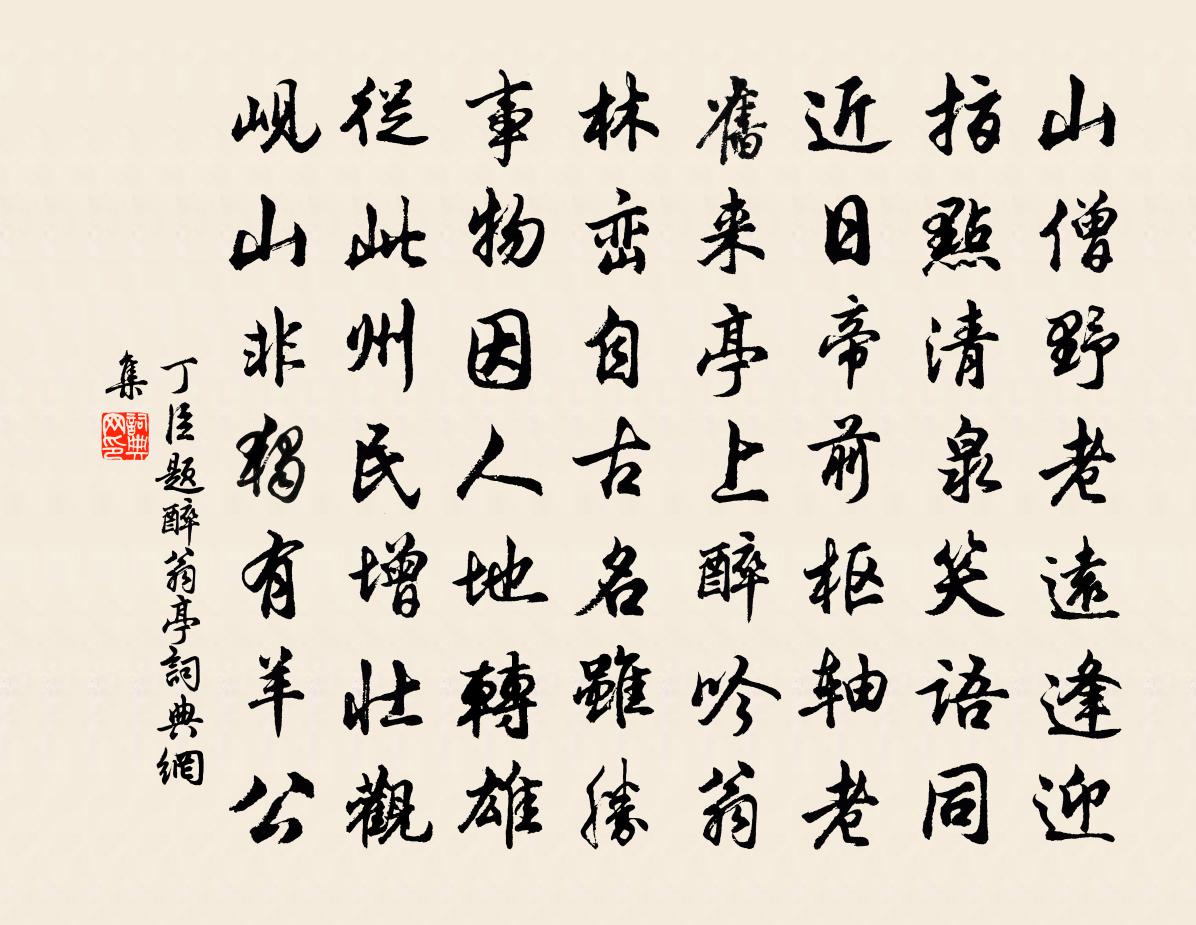 山僧野老遠逢迎
指點清泉笑語同
近日帝前枢軸老
舊来亭上醉吟翁
林巒自古名雖勝
事物因人地轉雄
從此州民增壯觀
峴山非獨有羊公
丁臣题醉翁亭詞典網
集
詞典网印